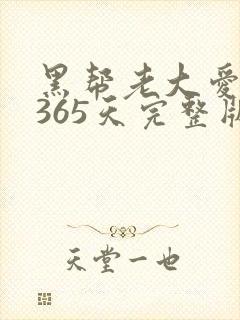 黑帮老大爱
365天完整版
天堂一也